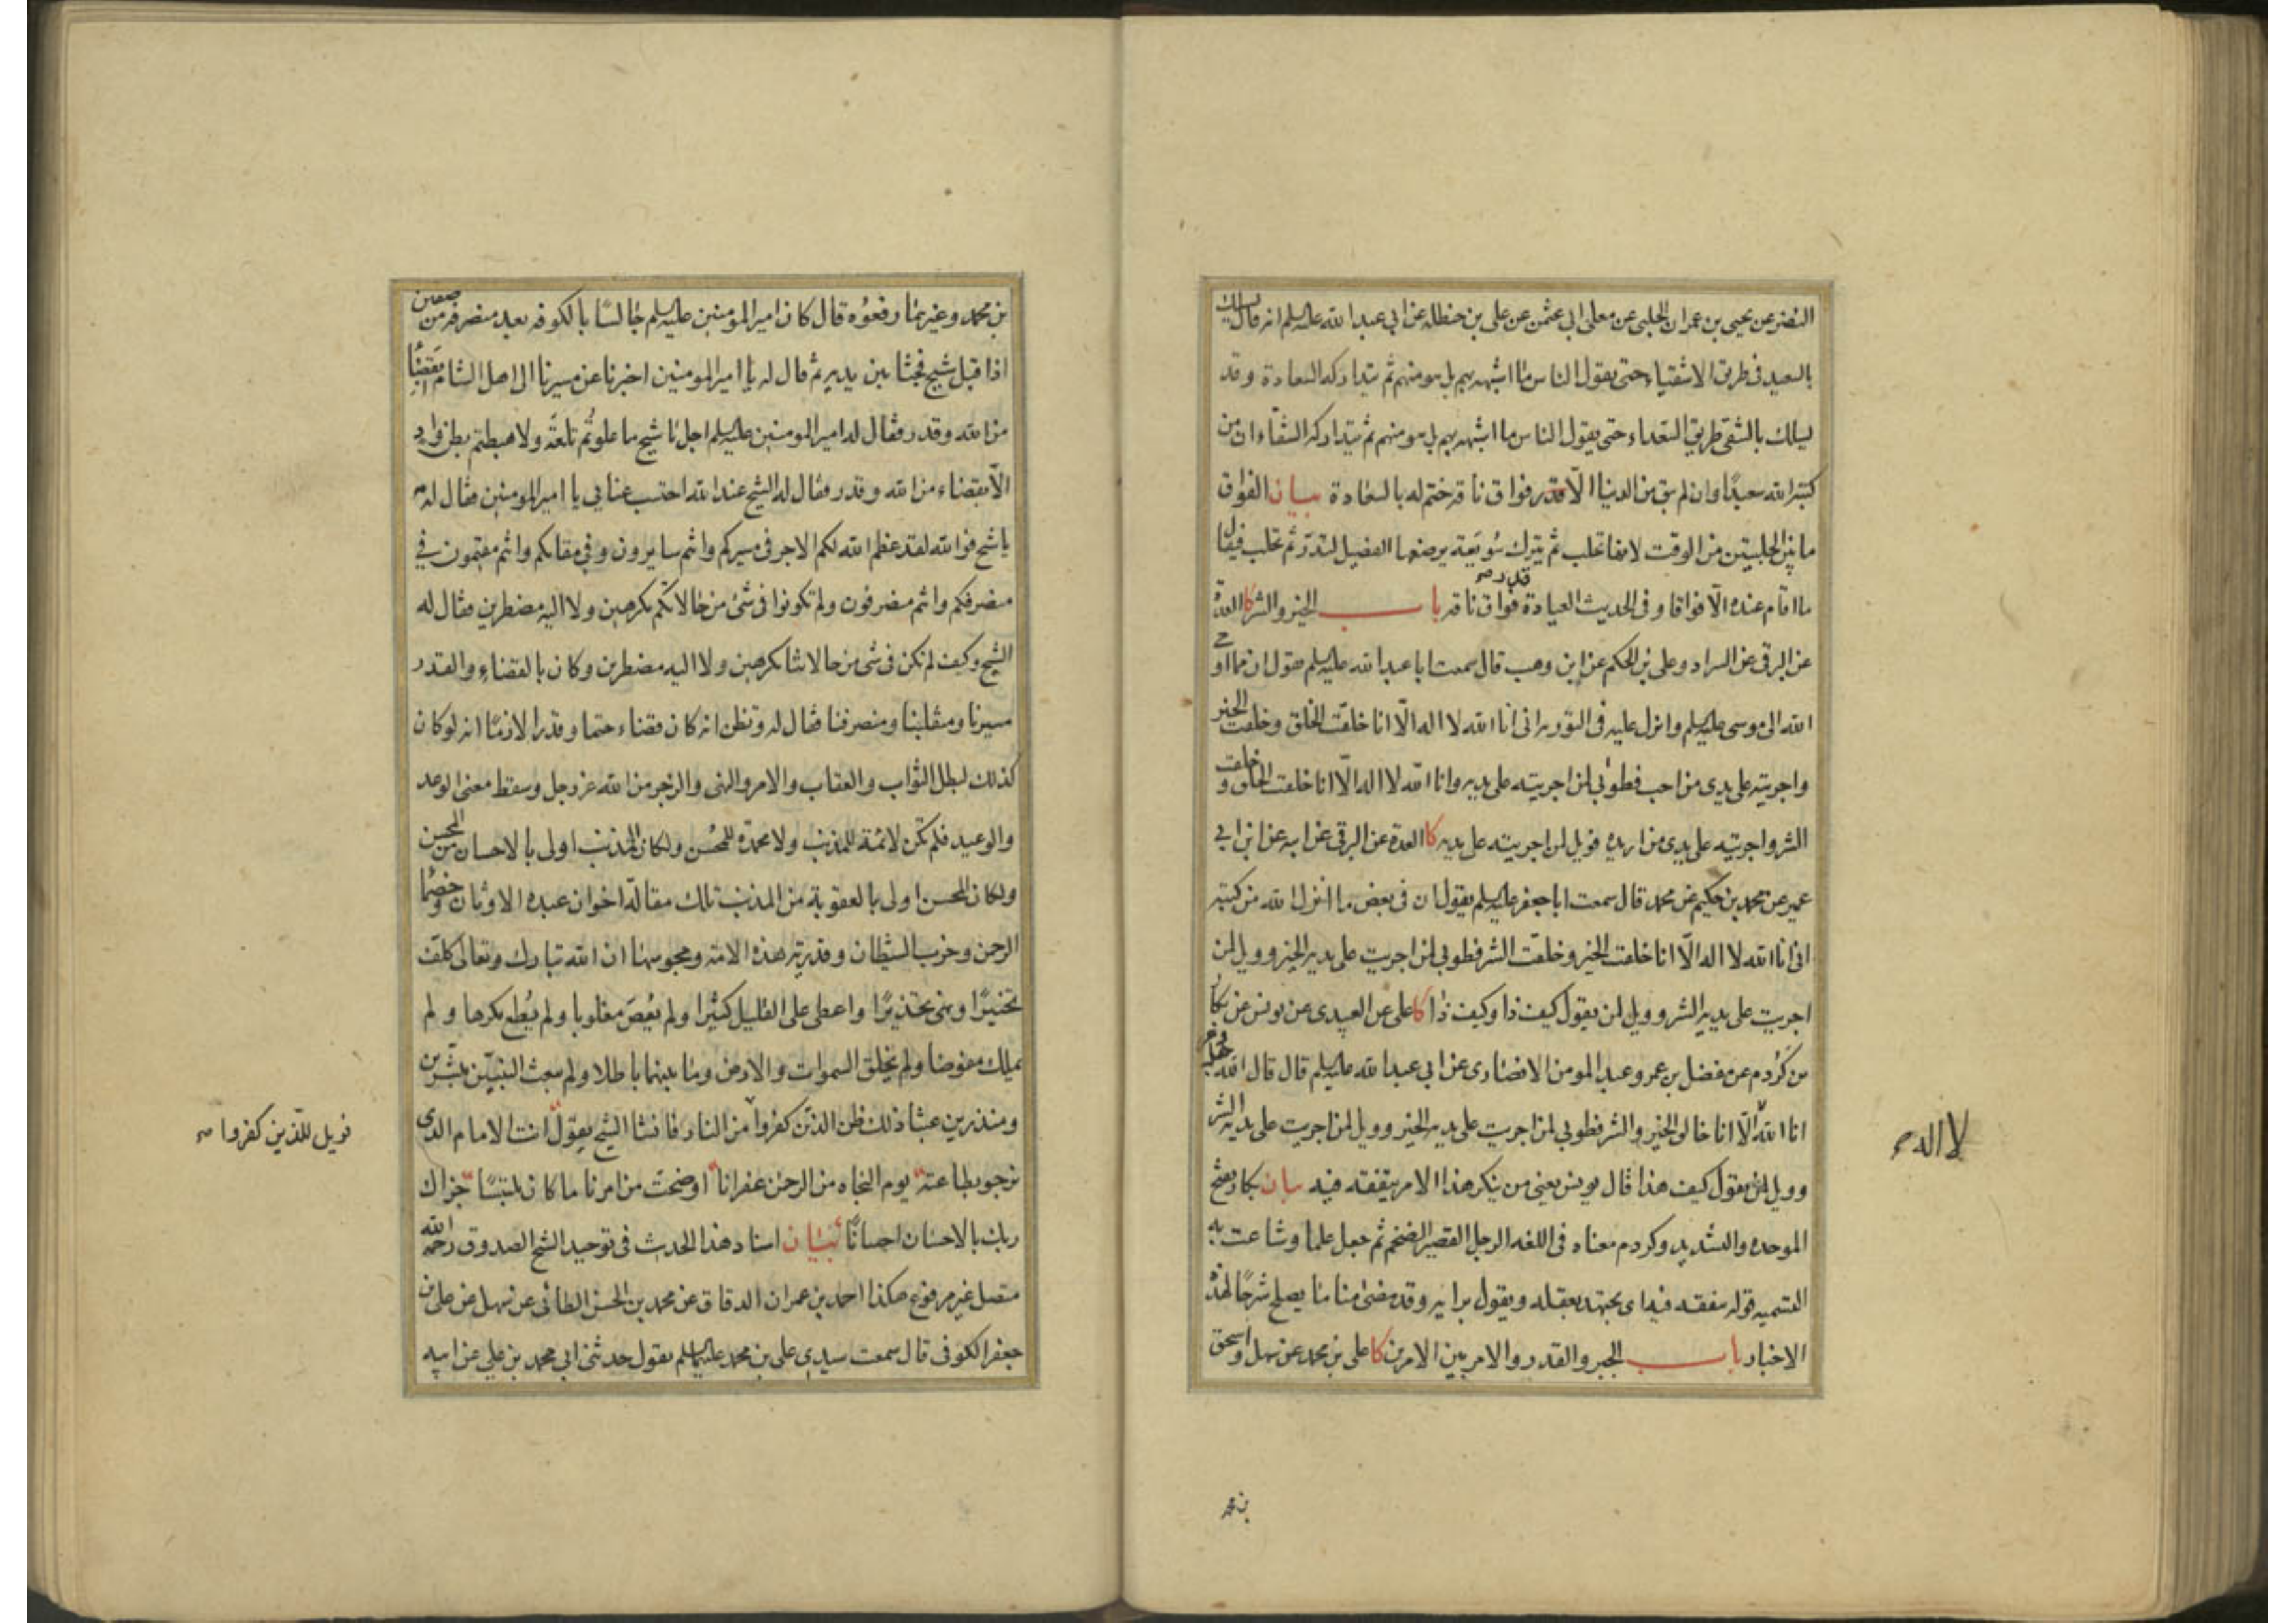 النضر عن يحيى بن عمران الحلبي عن معلى ابي عثمن عن علي بن حنظلة عن ابي عبدالله عليه السلم انه قال يسلك
بالسعيد في طريق الاشقياء حتى يقول الناس ما اشبهه بهم بل هو منهم ثم يتداركه السعادة وقد
يسلك بالشقي طريق السعداء حتى يقول الناس ما اشبهه بهم بل هو منهم ثم يتداركه الشقاء ان من
كتبه الله سعيدًا وان لم يبق من الدنيا الّا قدر فواق ناقة ختم له بالسعادة بيان الفواق
ما بين الحلبتين من الوقت لانها تحلب ثم يترك سُوَيعة يرضعها الفصيل لتدرّ ثم تحلب فيقال
ما اقام عنده الّا فواقا وفي الحديث العيادة قدر فواق ناقه باب الخير والشر كا العدة
عن البرقي عن السراد وعلي بن الحكم عن ابن وهب قال سمعت ابا عبدالله عليه السلم يقول ان مما اوحى
الله الى موسى عليه السلم وانزل عليه في التورية اني انا الله لا اله الّا انا خلقت الخلق وخلقت الخير
واجريته على يدي من احب فطوبى لمن اجريته على يديه وانا الله لا اله الّا انا خلقت الخلق وخلقت
الشر واجريته على يدي من اريده فويل لمن اجريته على يديه كا العدة عن البرقي عن ابيه عن ابن ابي
عمير عن محمد بن حكيم عن محمد قال سمعت ابا جعفر عليه السلم يقول ان في بعض ما انزل الله من كتبه
اني انا الله لا اله الّا انا خلقت الخير وخلقت الشر فطوبى لمن اجريت على يديه الخير وويل لمن
اجريت على يديه الشر وويل لمن يقول كيف ذا وكيف ذا كا علي عن العبيدي عن يونس عن بكار
بن كَرْدم عن مفضل بن عمر وعبد المومن الانصاري عن ابي عبدالله عليه السلم قال قال الله عز وجل
انا الله الّا انا خالق الخير والشر فطوبى لمن اجريت على يديه الخير وويل لمن اجريت على يديه الشر
لا اله صح
وويل لمن يقول كيف هذا قال يونس يعني من ينكر هذا الامر بتفقه فيه بيان بكار بفتح
الموحده والتشديد وكردم معناه في اللغه الرجل القصير الضخم ثم جعل علما وشاعت به
التسميه قوله بتفقه فيه اي يجتهد بعقله ويقول برايه وقد مضى منا ما يصلح شرحًا لهذه
الاخبار باب الجبر والقدر والامر بين الامرين كا علي بن محمد عن سهل واسحق
بن محمد
بن محمد وغيرهما رفعوه قال كان امير المومنين عليه السلم جالسًا بالكوفه بعد منصرفه من صفين
اذ اقبل شيخ فجثا بين يديه ثم قال له يا امير المومنين اخبرنا عن مسيرنا الى اهل الشام أبقضاء
من الله وقدر فقال له امير المومنين عليه السلم اجل يا شيخ ما علوتُم تلعةً ولا هبطتم بطن وادٍ
الّا بقضاء من الله وقدر فقال له الشيخ عند الله احتسب عنايي يا امير المومنين فقال له مه
يا شيخ فوالله لقد عظم الله لكم الاجر في مسيركم وانتم سايرون وفي مقامكم وانتم مقيمون في
منصرفكم وانتم منصرفون ولم تكونوا في شئ من حالاتكم مكرهين ولا اليه مضطرين فقال له
الشيخ وكيف لم نكن في شي من حالاتنا مكرهين ولا اليه مضطرين وكان بالقضاء والقدر
مسيرنا ومنقلبنا ومنصرفنا فقال له وتظن انه كان قضاء حتما وقدرا لازمًا انه لو كان
كذلك لبطل الثواب والعقاب والامر والنهي والزجر من الله عز وجل وسقط معنى الوعد
والوعيد فلم تكن لائمة للمذنب ولا محمدة للمحسن ولكان المذنب اولى بالاحسان من المحسن
ولكان المحسن اولى بالعقوبة من المذنب تلك مقالة اخوان عبدة الاوثان وخصماء
الرحمن وحزب الشيطان وقدرية هذه الامة ومجوسها ان الله تبارك وتعالى كلّف
تخييرًا ونهى تحذيرًا واعطى على القليل كثيرًا ولم يُعصَ مغلوبا ولم يُطع مكرها ولم
يملّك مفوضا ولم يخلق السموات والارض وما بينهما باطلا ولم يبعث النبيّين مبشّرين
ومنذرين عبثا ذلك ظن الذين كفروا من النار فانشا الشيخ يقول انت الامام الذي
فويل للّذين كفروا صح
نرجو بطاعته يوم النجاه من الرحمن غفرانا اوضحت من امرنا ما كان ملتبسًا جزاك
ربك بالاحسان احسانًا بيان اسناد هذا الحديث في توحيد الشيخ الصدوق رحمه الله
متصل غير مرفوع هكذا احمد بن عمران الدقاق عن محمد بن الحسن الطائي عن سهل عن علي بن
جعفر الكوفي قال سمعت سيدي علي بن محمد عليهما السلم يقول حدثني ابي محمد بن علي عن ابيه